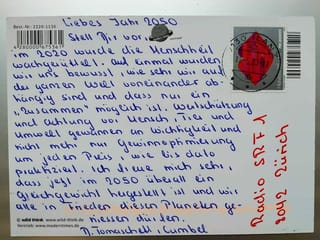 Best.-Nr: 2320-1136
Liebes Jahr 2050
Stell Dir vor
im 2020 wurde die Menschheit
wachgerüttelt. Auf einmal wurden
wir uns bewusst, wie sehr wir auf
der ganzen Welt voneinander ab-
hängig sind und dass nur ein
"zusammen" möglich ist. Wertschätzung
und Achtung vor Mensch, Tier und
Umwelt gewannen an Wichtigkeit und
nicht mehr nur Gewinnoptimierung
um jeden Preis, wie bis dato
praktiziert. Ich freue mich sehr,
dass jetzt im 2050 überall ein
Gleichgewicht hergestellt ist und wir
alle in Frieden diesen Planeten ge-
niessen dürfen.
D. Tomaschett, Cumbel
Radio SRF 1
8042 Zürich
4280000675367
© wild think www.wild-think.de
Vertrieb: www.moderntimes.de